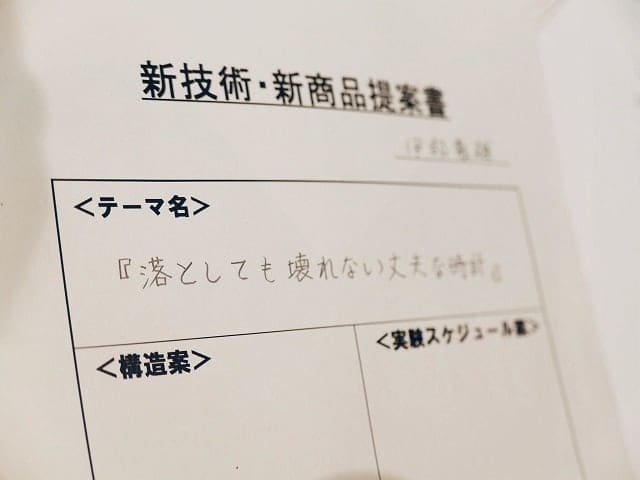 新技術・新商品提案書
＜テーマ名＞
『落としても壊れない丈夫な時計』
＜構造案＞
＜実験スケジュール案＞